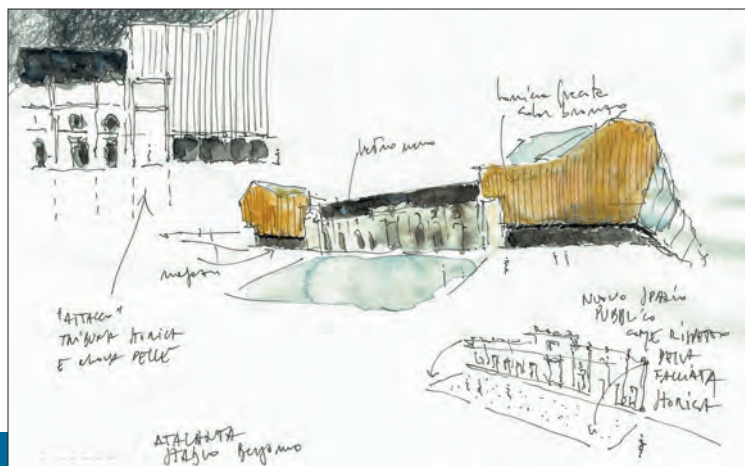 lamiera grecata
color bronzo
vetro nero
negozi
"ATTACCO"
TRIBUNA STORICA
E NUOVA PELLE
NUOVO SPAZIO
PUBBLICO
COME RISPETTO
DELLA
FACCIATA
STORICA
ATALANTA
STADIO Bergamo